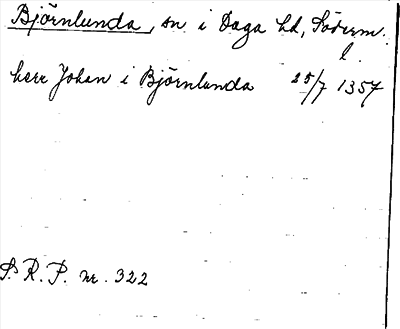 Björnlunda, sn i Daga hd, Söderm.
l.
herr Johan i Björnlunda 25/7 1357
S.R.P. nr. 322